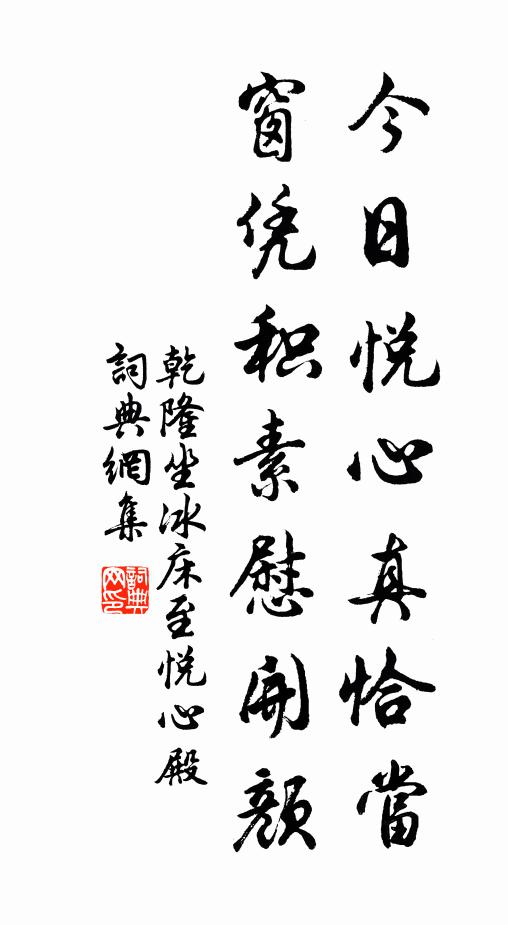 今日悦心真恰當
窗凭积素慰開顔
乾隆坐冰床至悦心殿
詞典網集
詞典网印